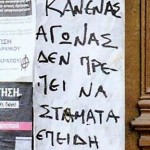 ΚΑΝΕΝΑΣ
ΑΓΩΝΑΣ
ΔΕΝ ΠΡΕ-
ΠΕΙ ΝΑ
ΣΤΑΜΑΤΑ
ΕΠΕΙΔΗ